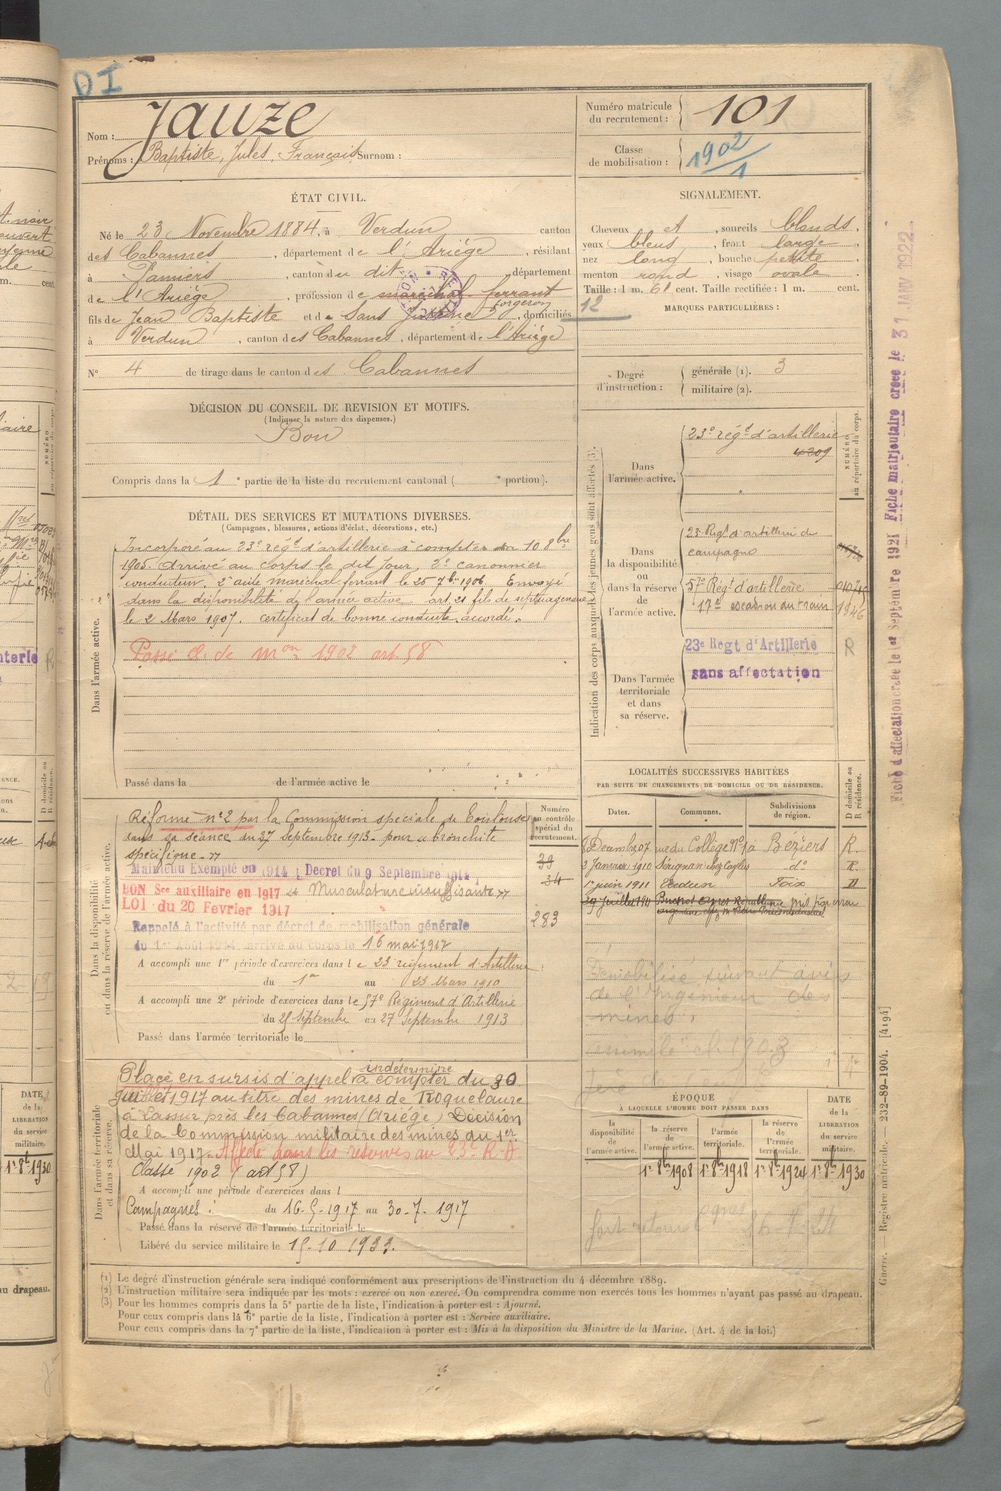 DI
Nom : Jauze
Prénoms : Baptiste, Jules, François Surnom :
Numéro matricule du recrutement : 101
Classe de mobilisation : 1902/1
ÉTAT CIVIL.
Né le 23 Novembre 1884, à Verdun canton
des Cabannes, département de l'Ariége, résidant
à Pamiers, canton du dit, département
de l'Ariége, profession de maréchal ferrant
forgeron
fils de Jean Baptiste et de Sans Justine, domiciliés
à Verdun, canton des Cabannes, département de l'Ariége
N° 4 de tirage dans le canton des Cabannes
SIGNALEMENT.
Cheveux et, sourcils blonds,
yeux bleus, front large
nez long, bouche petite
menton rond, visage ovale
Taille : 1 m. 61 cent. Taille rectifiée : 1 m. cent.
12
MARQUES PARTICULIÈRES :
Degré d'instruction : générale (1). 3
militaire (2).
DÉCISION DU CONSEIL DE REVISION ET MOTIFS.
(Indiquer la nature des dispenses.)
Bon
Compris dans la 1e partie de la liste du recrutement cantonal ( e portion).
DÉTAIL DES SERVICES ET MUTATIONS DIVERSES.
(Campagnes, blessures, actions d'éclat, décorations, etc.)
Dans l'armée active.
Incorporé au 23e régt d'artillerie à compter du 10 8bre
1905. Arrivé au corps le dit jour, 2e canonnier
conducteur. 2e aide maréchal ferrant le 25 7bre 1906. Envoyé
dans la disponibilité de l'armée active art. 21 fils de septuagénaire
le 2 Mars 1907. certificat de bonne conduite accordé.
Passé cl. de mon 1902 art 58
Passé dans la de l'armée active le
Indication des corps auxquels les jeunes gens sont affectés (3).
NUMÉRO au répertoire du corps.
Dans l'armée active.
23e régt d'artillerie
4209
Dans la disponibilité ou dans la réserve de l'armée active.
23 Régt d'artillerie de
campagne
57e Régt d'artillerie
17e escadron du train
23e Regt d'Artillerie R
sans affectation
Dans l'armée territoriale et dans sa réserve.
LOCALITÉS SUCCESSIVES HABITÉES
PAR SUITE DE CHANGEMENTS DE DOMICILE OU DE RÉSIDENCE.
Dates. Communes. Subdivisions de région. D domicile ou R résidence.
Décembre 07 rue du Collège N°9 à Béziers R.
2 Janvier 1910 Sérignan chez Cayles do R.
1er juin 1911 Verdun Foix D
Dans la disponibilité ou dans la réserve de l'armée active.
Numéro au contrôle spécial du recrutement.
Réformé n°2 par la Commission spéciale de Toulouse
dans sa séance du 27 septembre 1913 pour "bronchite
spécifique"
Maintenu Exempté en 1914 Décret du 9 Septembre 1914
BON Sce auxiliaire en 1917 Musculature insuffisante
LOI du 20 Fevrier 1917
Rappelé à l'activité par décret de mobilisation générale
du 1er Août 1914 arrivé au corps le 16 mai 1917
39
34
283
A accompli une 1re période d'exercices dans le 23 régiment d'Artillerie
du 1er au 23 Mars 1910
A accompli une 2e période d'exercices dans le 57e Régiment d'Artillerie
du septembre au 27 Septembre 1913
Passé dans l'armée territoriale le
Démobilisé suivant avis
de l'Ingénieur des
mines.
Dans l'armée territoriale et dans sa réserve.
indéterminé
Placé en sursis d'appel à compter du 30
Juillet 1917 au titre des mines de Roquelaure
à Lassur près les Cabannes (Ariége) Décision
de la Commission militaire des mines du 1er
Mai 1917. Affecté dans les réserves au 23e R.A.
Classe 1902 (art 58)
A accompli une période d'exercices dans l
Campagnes : du 16-5-1917 au 30-7-1917
Passé dans la réserve de l'armée territoriale le
Libéré du service militaire le 15-10 1933.
ÉPOQUE
À LAQUELLE L'HOMME DOIT PASSER DANS
la disponibilité de l'armée active. la réserve de l'armée active. l'armée territoriale. la réserve de l'armée territoriale. DATE de la LIBÉRATION du service militaire.
1er 8bre 1908 1er 8bre 1918 1er 8bre 1924 1er 8bre 1930
(1) Le degré d'instruction générale sera indiqué conformément aux prescriptions de l'instruction du 4 décembre 1889.
(2) L'instruction militaire sera indiquée par les mots : exercé ou non exercé. On comprendra comme non exercés tous les hommes n'ayant pas passé au drapeau.
(3) Pour les hommes compris dans la 5e partie de la liste, l'indication à porter est : Ajourné.
Pour ceux compris dans la 6e partie de la liste, l'indication à porter est : Service auxiliaire.
Pour ceux compris dans la 7e partie de la liste, l'indication à porter est : Mis à la disposition du Ministre de la Marine. (Art. 4 de la loi.)
Guerre. — Registre matricule. — 232-89-1904. [4194]
Fiche d'affectation créée le 1er Septembre 1921 Fiche matriculaire créée le 31 JANV 1922
DATE
de la
LIBÉRATION
du service
militaire.
1er 8bre 1930
au drapeau.